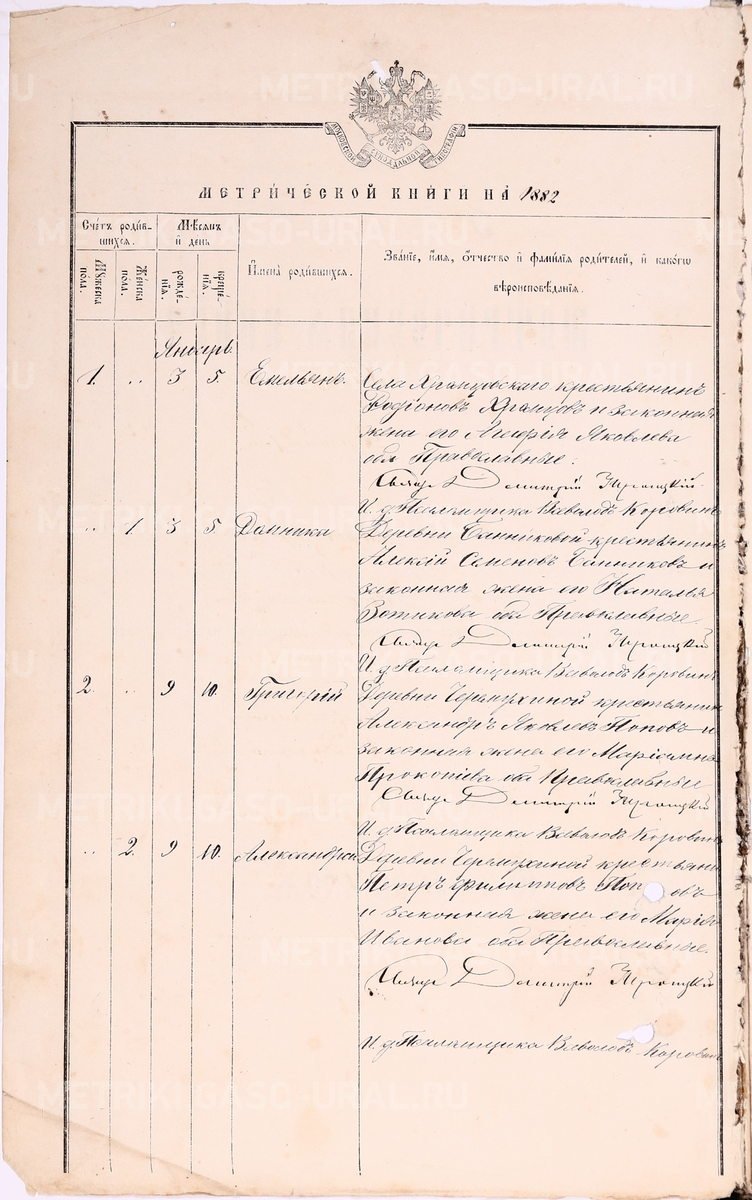 МОСКОВСКОЙ СѴНОДАЛЬНОЙ ТИПОГРАФІИ
МЕТРИ́ЧЕСКОЙ КНИ́ГИ НА́ 1882
Сче́тъ роди́в-
шихся.
Мѣсяцъ
и҆ день
И҆мена̀ роди́вшихся.
Зва́нїе, и҆́мя, ѻ҆́тчество и҆ фами́лїя роди́телей, и҆ како́гѡ
вѣроисповѣ́данїя.
Мꙋжеска
по́ла.
Же́нска
по́ла.
рожде́-
нїя.
креще́-
нїя.
Январь.
1. „ 3 5. Емельянъ.
Села Храмцовскаго крестьянинъ
Родіоновъ Храмцовъ и законная
жена его Яковлева
оба Православные:
Священ. Димитрій Троицкій
И. д. Псаломщика Всеволодъ Коровинъ
„ 1. 3 5. Домника
Деревни Банниковой крестьянинъ
Алексѣй Семеновъ Банниковъ и
законная жена его Наталья
Зотикова оба Православные.
Священ. Димитрій Троицкій
И. д. Псаломщика Всеволодъ Коровинъ
2. „ 9 10. Григорій
Деревни Черемухиной крестьянинъ
Александръ Яковлевъ Поповъ и
законная жена его Маріамна
Прокопіева оба Православные
Священ. Димитрій Троицкій
И. д. Псаломщика Всеволодъ Коровинъ
„ 2. 9 10. Александра
Деревни Черемухиной крестьянинъ
Петръ Филипповъ Поповъ
и законная жена его Марія
Иванова оба Православные.
Священ. Димитрій Троицкій
И. д. Псаломщика Всеволодъ Коровинъ
METRIKI.GASO-URAL.RU